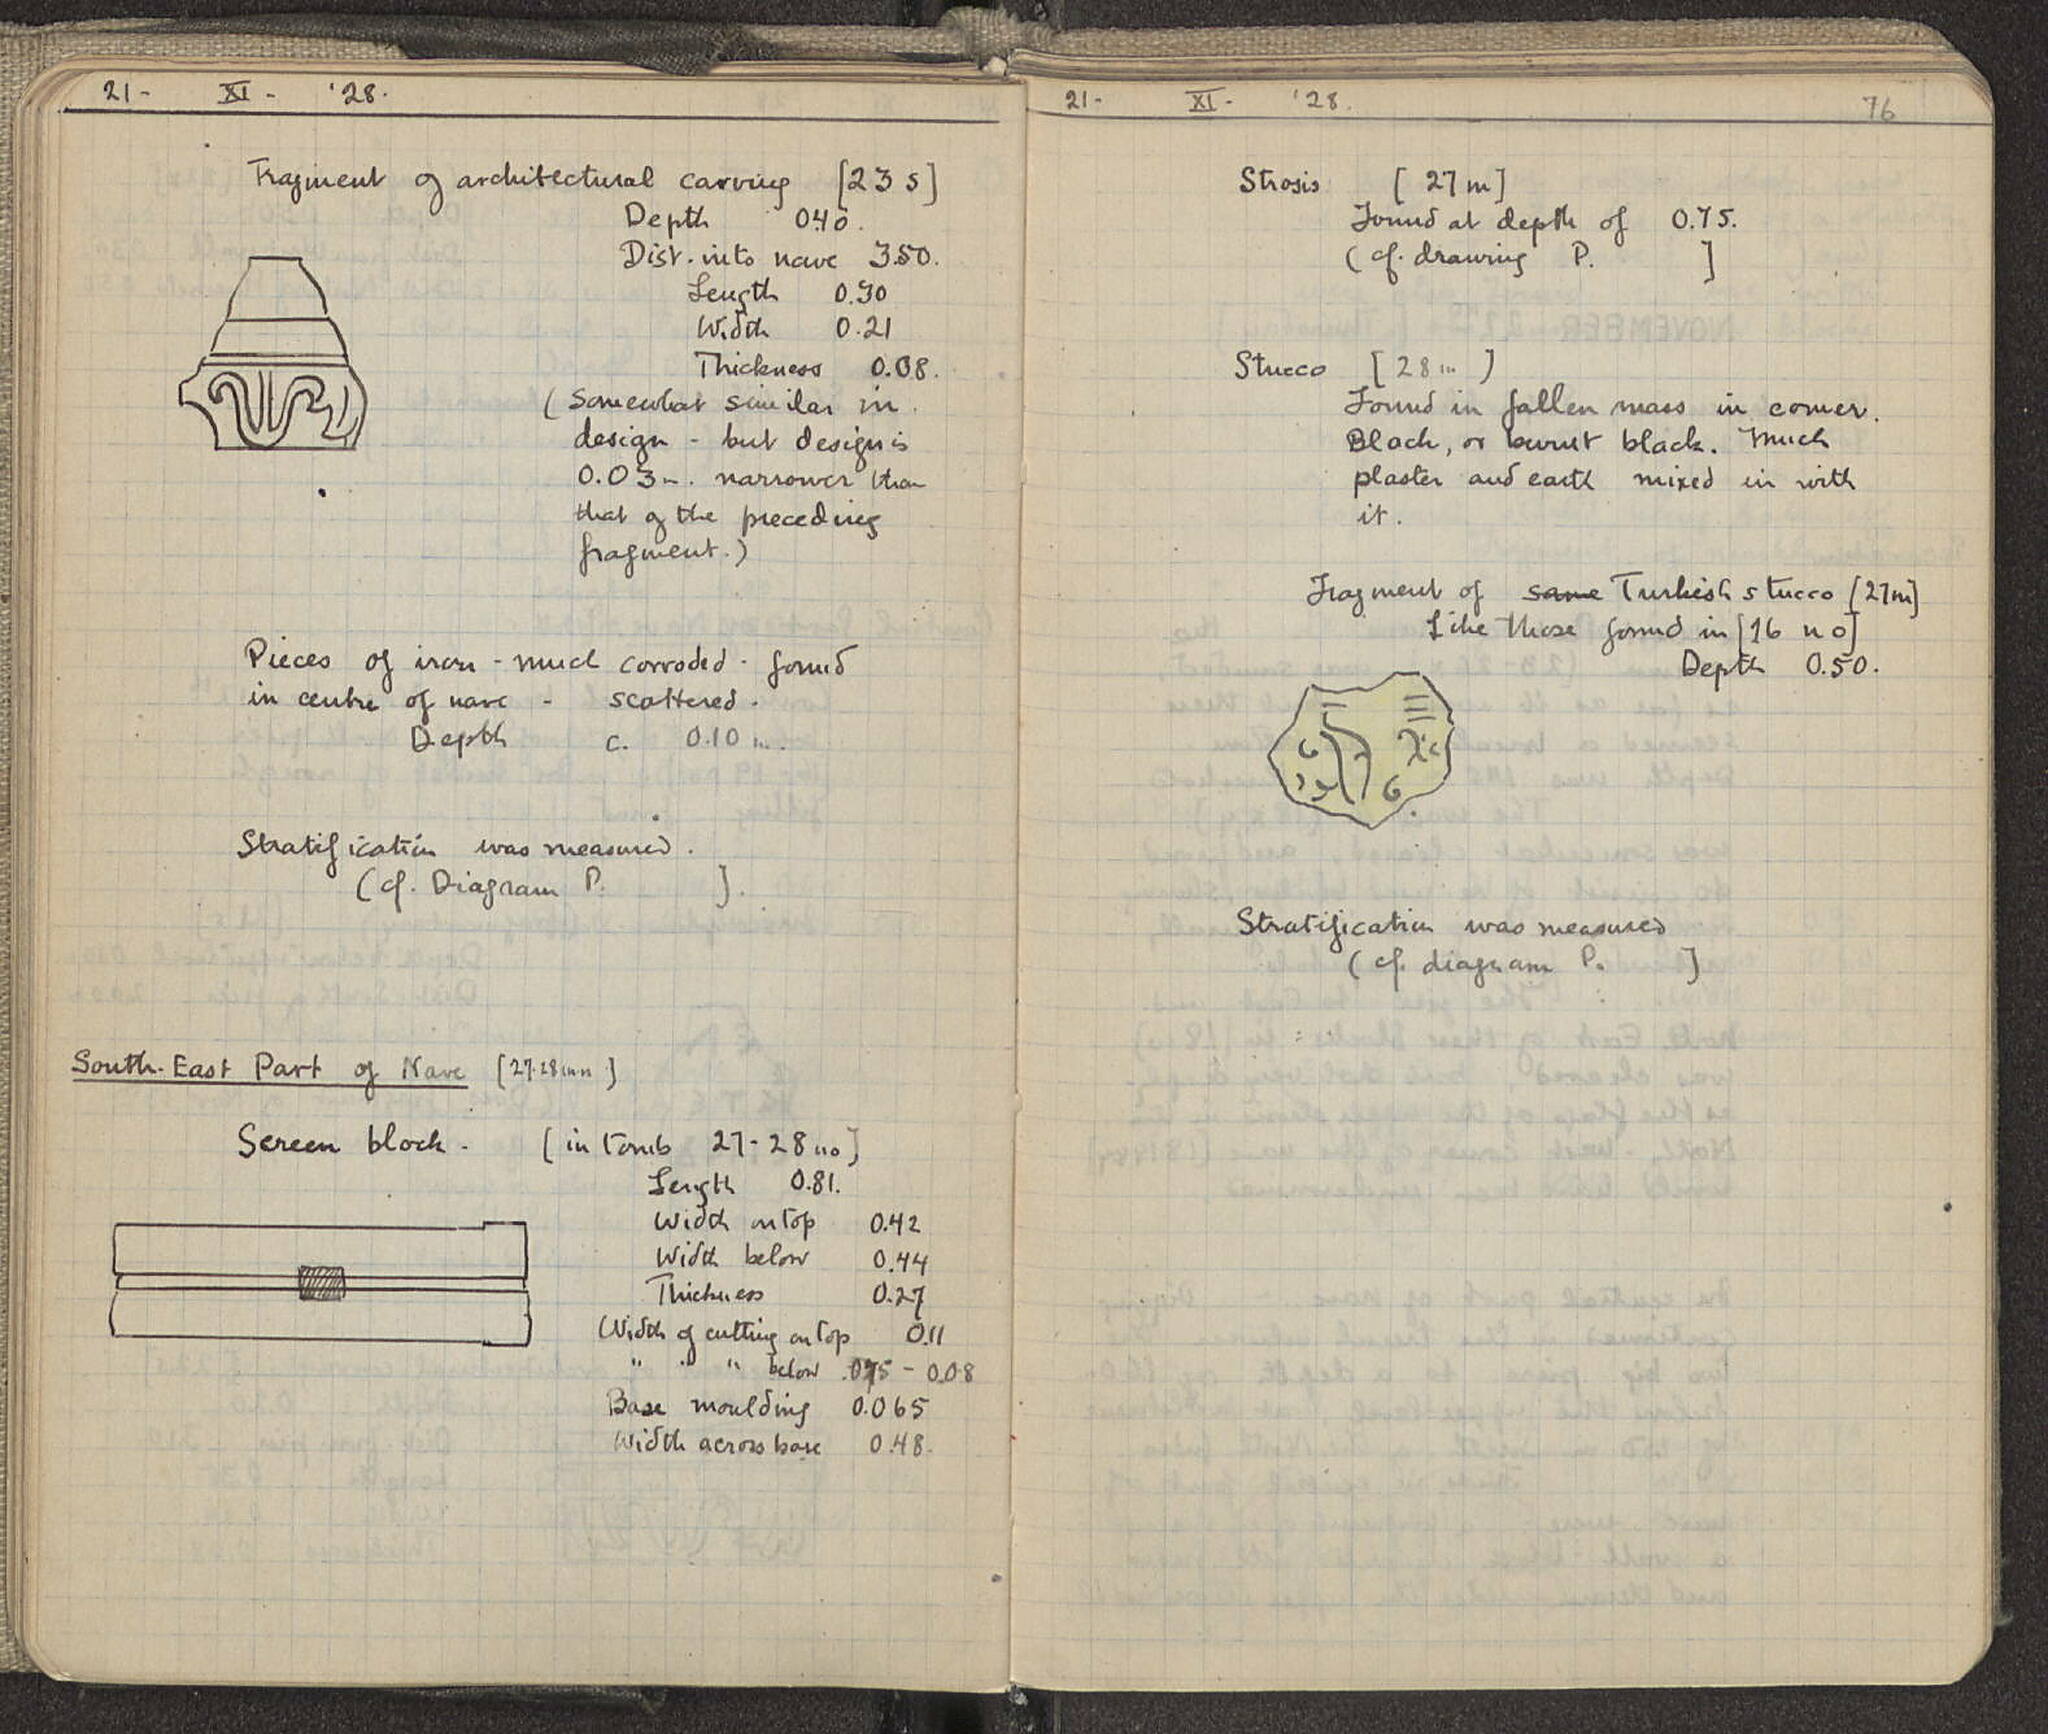 21- XI- '28.
Fragment of architectural carving [23 s]
Depth 0.40.
Dist. into nave 3.50.
Length 0.30
Width 0.21
Thickness 0.08.
(Somewhat similar in
design - but design is
0.03 m. narrower than
that of the preceding
fragment.)
Pieces of iron - much corroded - found
in centre of nave - scattered.
Depth c. 0.10 m.
Stratification was measured.
(cf. Diagram P. ].
South-East Part of Nave [27-28 mn]
Screen block. [in tomb 27-28 no]
Length 0.81.
Width on top 0.42
Width below 0.44
Thickness 0.27
Width of cutting on top 0.11
" " " below .075 - 0.08
Base moulding 0.065
Width across base 0.48.
21- XI- '28. 76
Strosis [27 m]
Found at depth of 0.75.
(cf. drawing P. ]
Stucco [28 m]
Found in fallen mass in corner.
Black, or burnt black. Much
plaster and earth mixed in with
it.
Fragment of same Turkish stucco [27m]
Like those found in [16 no]
Depth 0.50.
Stratification was measured
(cf. diagram P. ]